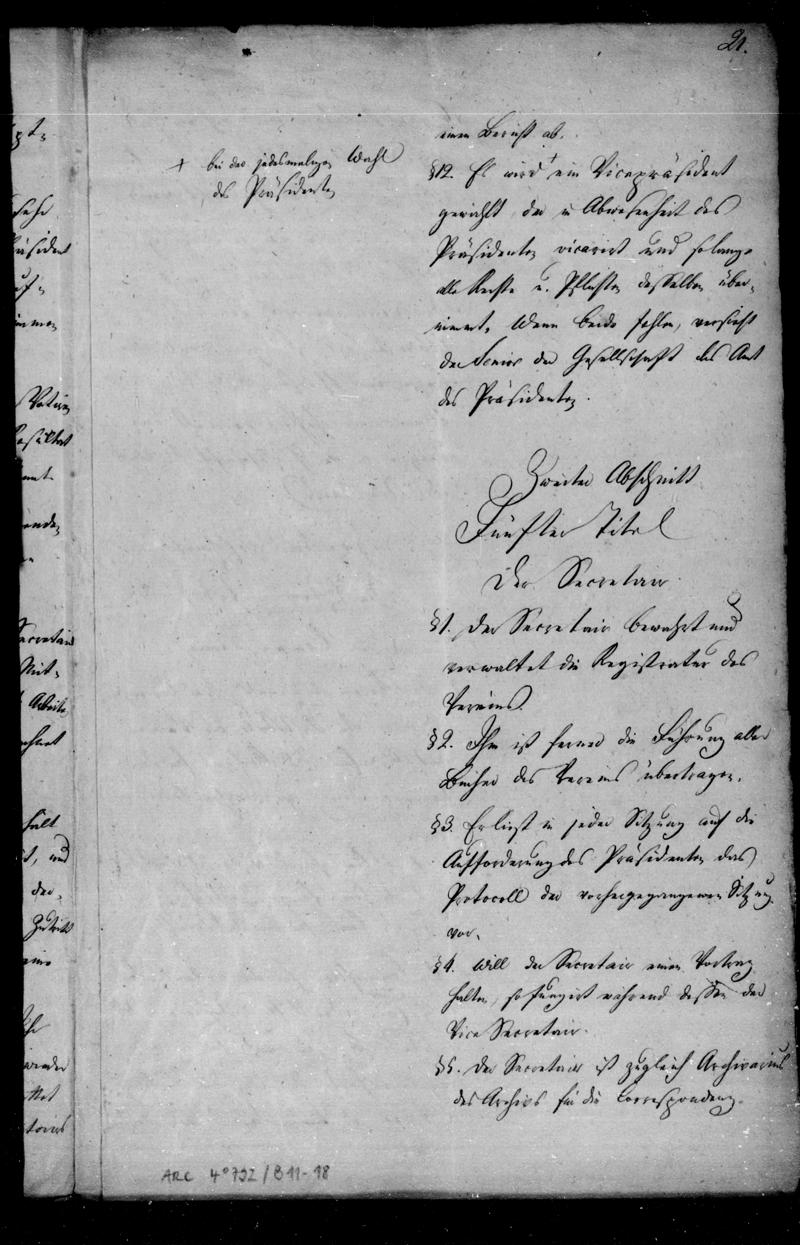 21.
einen Bericht ab.
§12. Es wird + ein Vicepräsident
+ bei der jedesmaligen Wahl
des Präsidenten
gewählt, der in Abwesenheit des
Präsidenten vicarirt und solange
alle Rechte u. Pflichten desselben über-
nimmt. Wenn beide fehlen, versieht
der Senior der Gesellschaft das Amt
des Präsidenten.
Zweiter Abschnitt
Fünfter Titel
Der Secretair
§1. Der Secretair bewahrt und
verwaltet die Registratur des
Vereins.
§2. Ihm ist ferner die Führung aller
Bücher des Vereins übertragen.
§3. Er liest in jeder Sitzung auf die
Aufforderung des Präsidenten das
Protocoll der vorhergegangenen Sitzung
vor.
§4. Will der Secretair einen Vortrag
halten, so fungirt während dessen der
Vice Secretair.
§5. Der Secretair ist zugleich Archivarius
des Archivs für die Correspondenz.
ARC 4° 792 / B 11-18